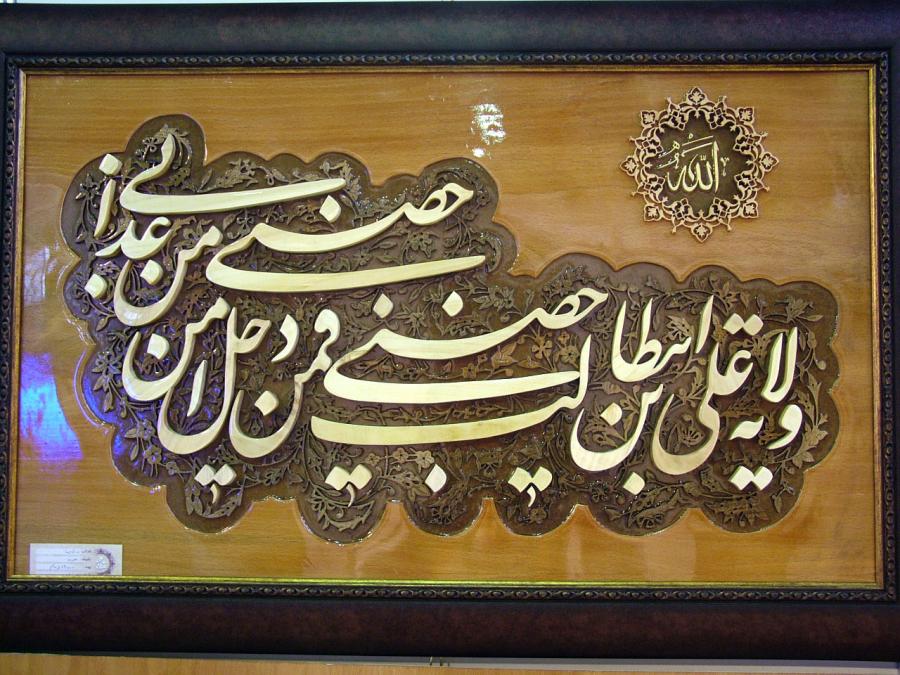 الله
ولایة علی بن ابیطالب حصنی فمن دخل حصنی امن من عذابی